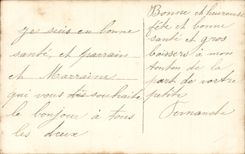 je suis en bonne
santé, et parrain
et Marraine
qui vous dis souhaite
le bonjour à tous
les deux
Bonne et heureuse
fête et bonne
santé et gros
baisers à mon
tonton de la
part de votre
petite
Fernande